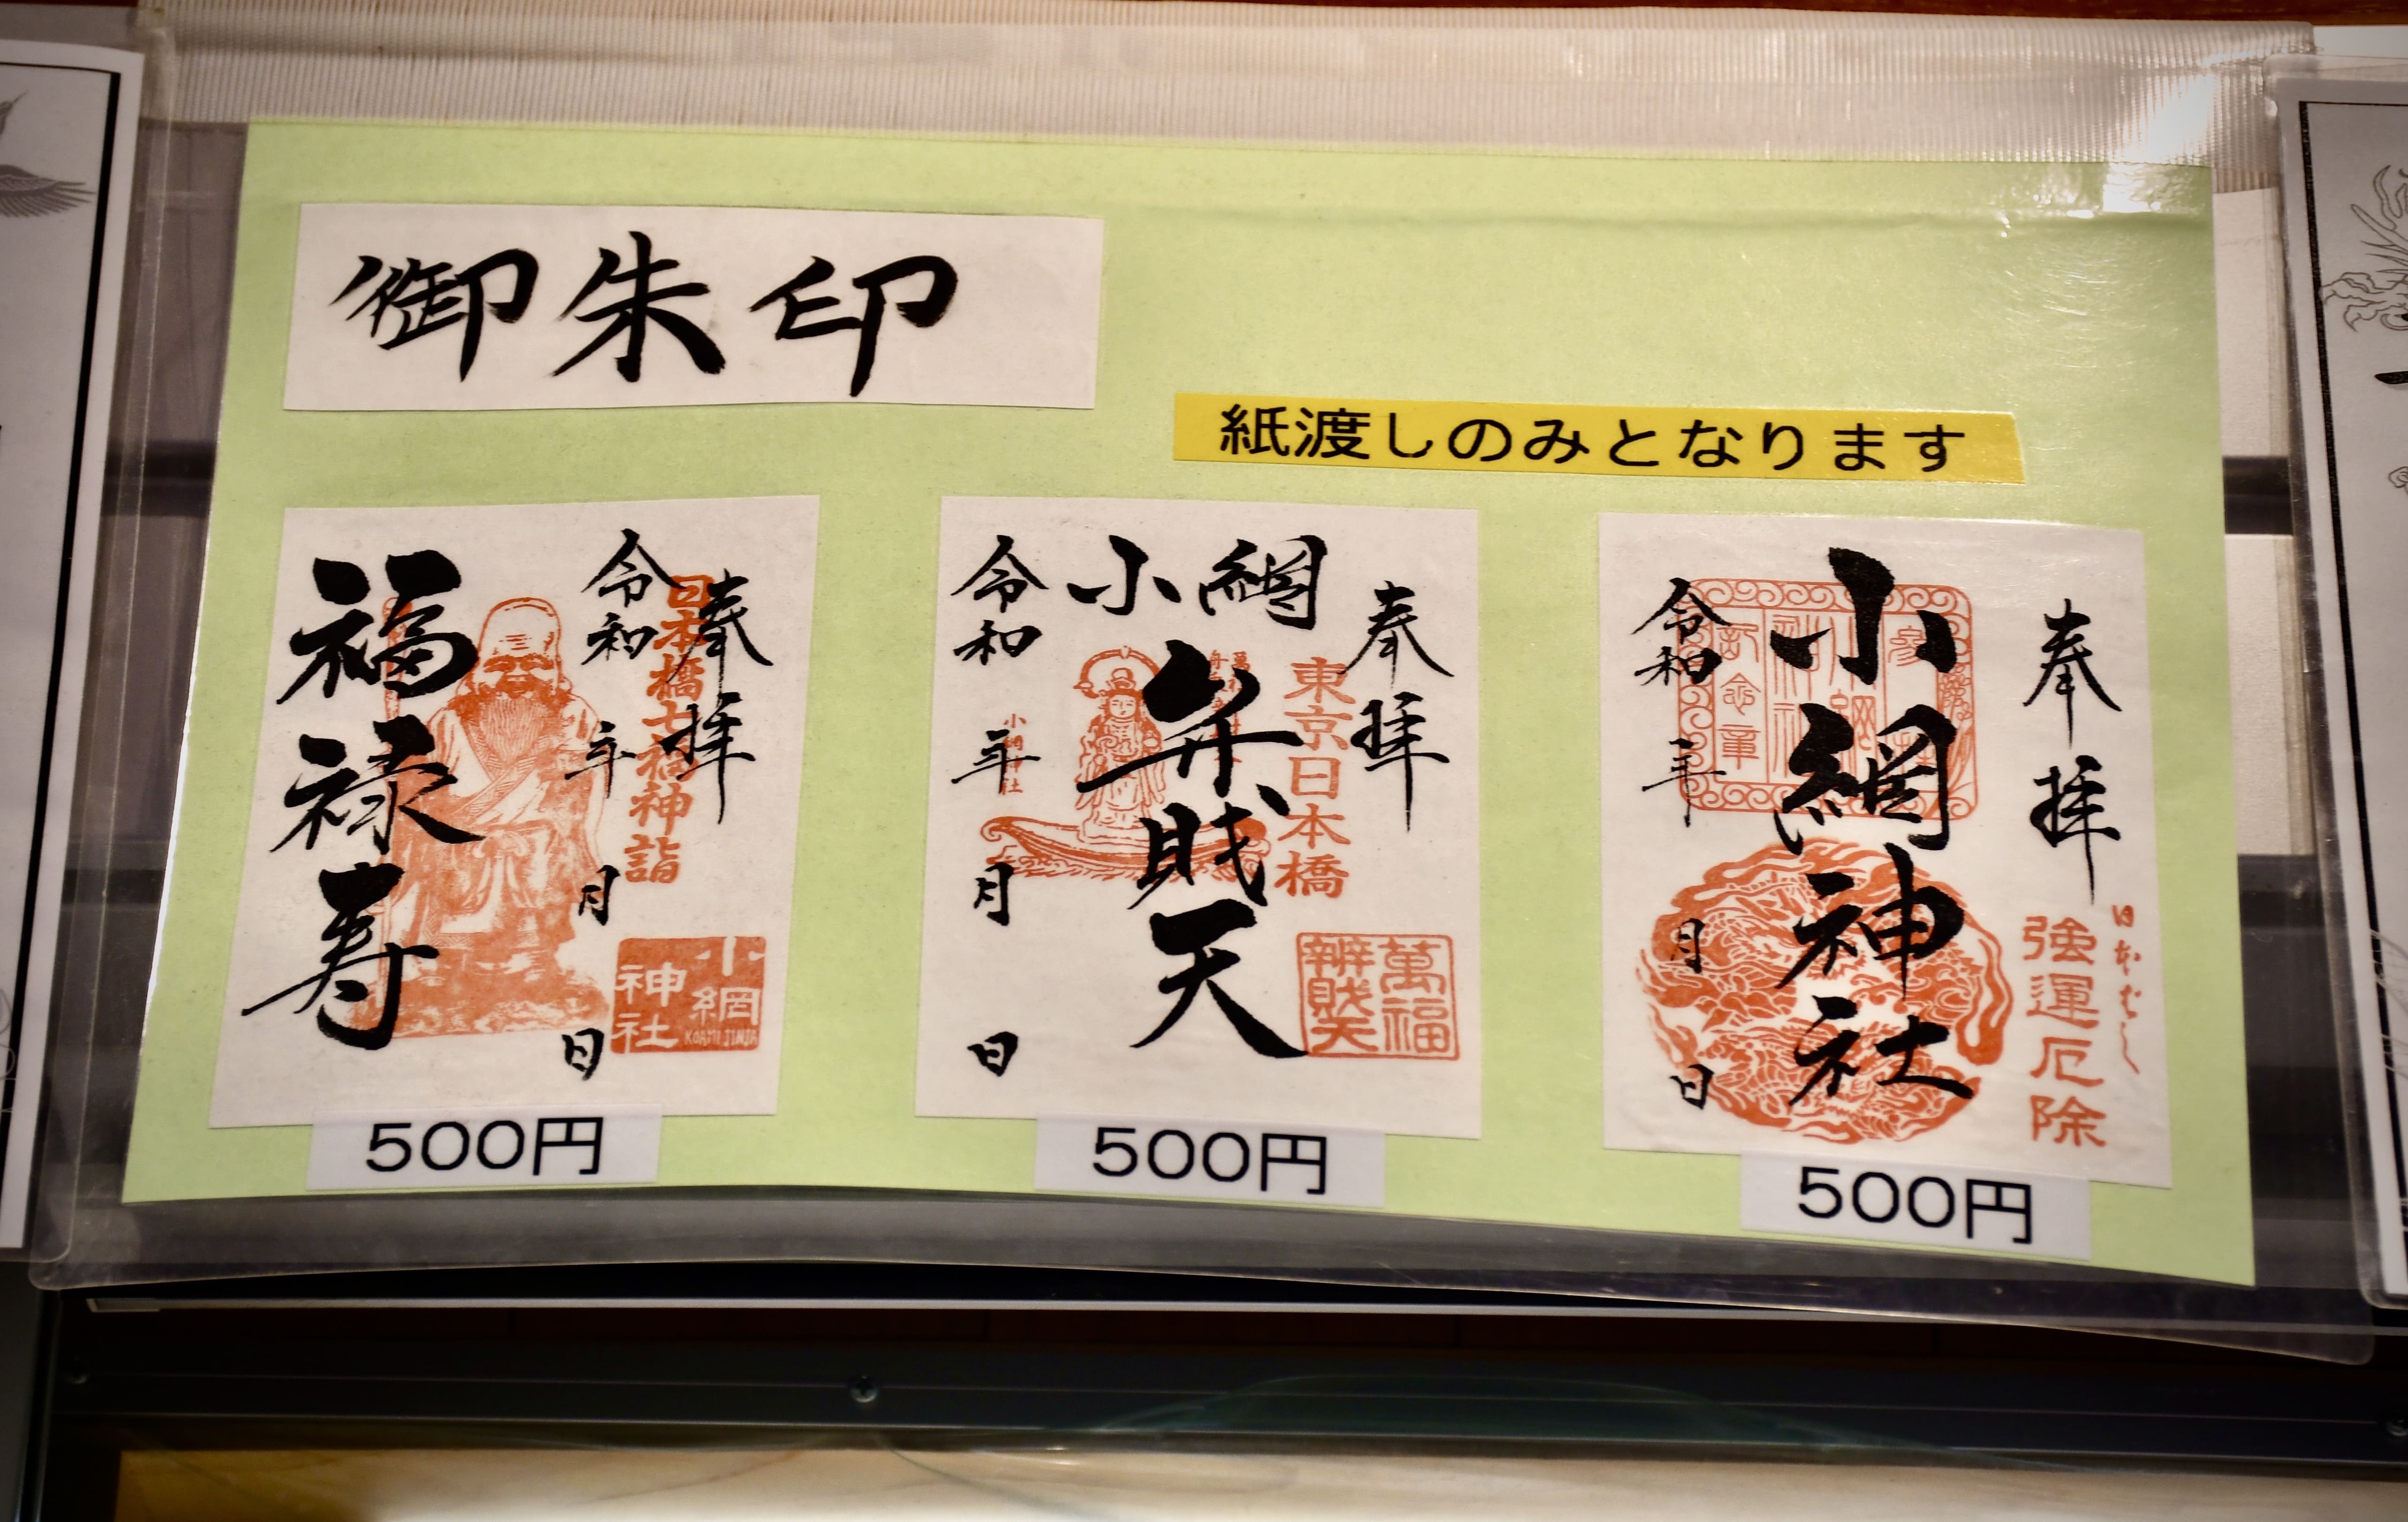 御朱印
紙渡しのみとなります
奉拝
日本橋七福神詣
令和 年 月 日
福禄寿
小網神社
KOAMI JINJA
500円
奉拝
東京日本橋
小網
弁財天
萬福
辨財天
小網神社
令和 年 月 日
500円
奉拝
日本ばし
強運厄除
小網神社
令和 年 月 日
500円